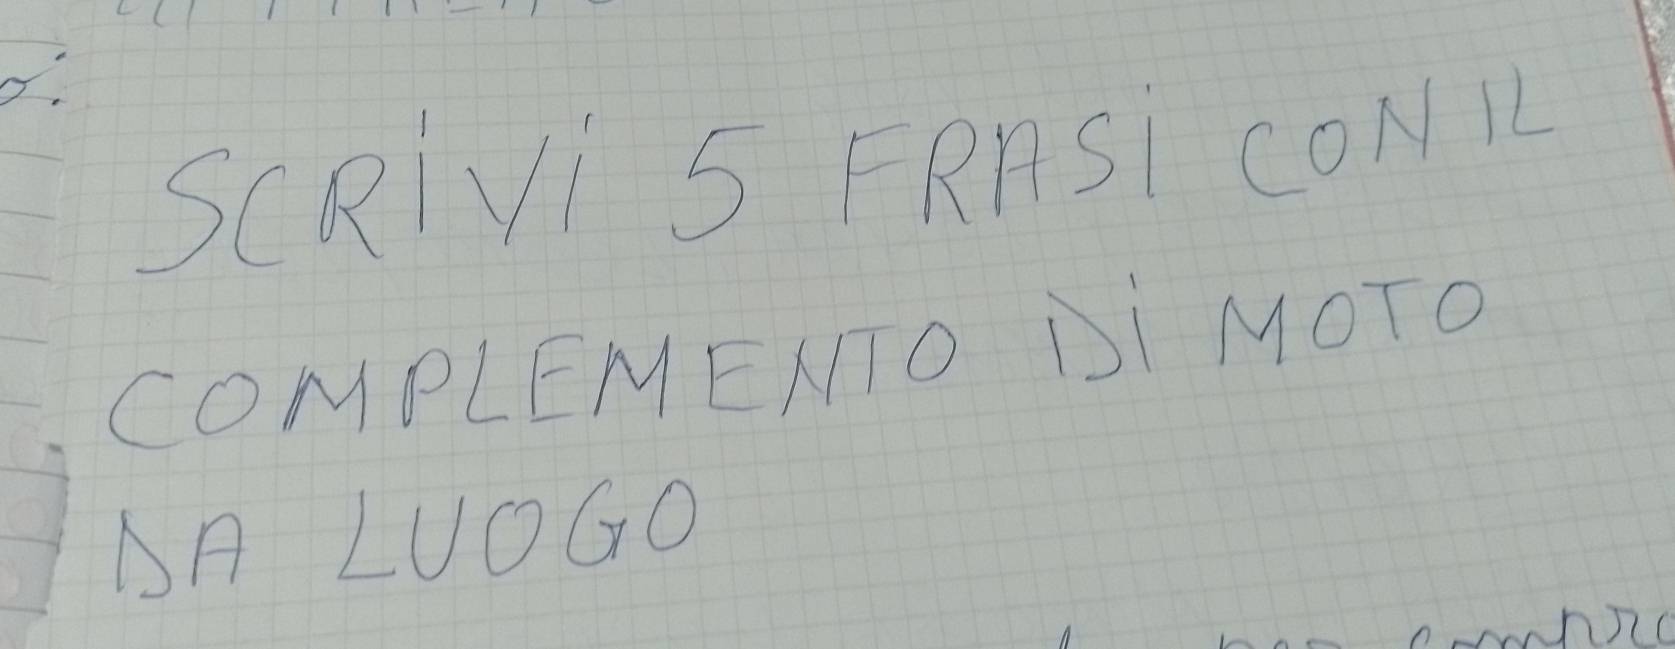 SCRIVI 5 FRASI CON IL
COMPLEMENTO DI MOTO
DA LUOGO